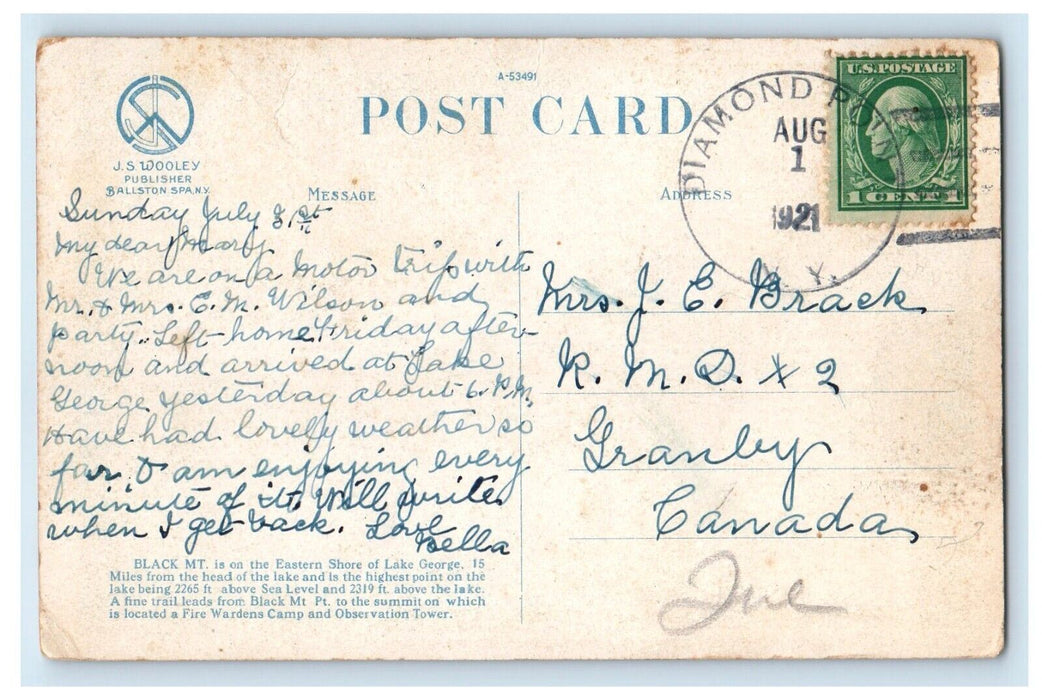 A-53491
POST CARD
J.S. WOOLEY
PUBLISHER
BALLSTON SPA, N.Y.
MESSAGE
ADDRESS
DIAMOND POINT
AUG
1
1921
N. Y.
U.S. POSTAGE
1 CENT 1
Sunday July 31st
My dear Mary
We are on a Motor trip with
Mr. & Mrs. E. M. Wilson and
party. Left home Friday after-
noon and arrived at Lake
George yesterday about 6. P.M.
Have had lovely weather so
far, & am enjoying every
minute of it. Will write
when I get back. Love
Bella
Mrs. J. C. Brack
R. M. D. x 2
Granby
Canada
BLACK MT. is on the Eastern Shore of Lake George, 15
Miles from the head of the lake and is the highest point on the
lake being 2265 ft above Sea Level and 2319 ft. above the lake.
A fine trail leads from Black Mt Pt. to the summit on which
is located a Fire Wardens Camp and Observation Tower.